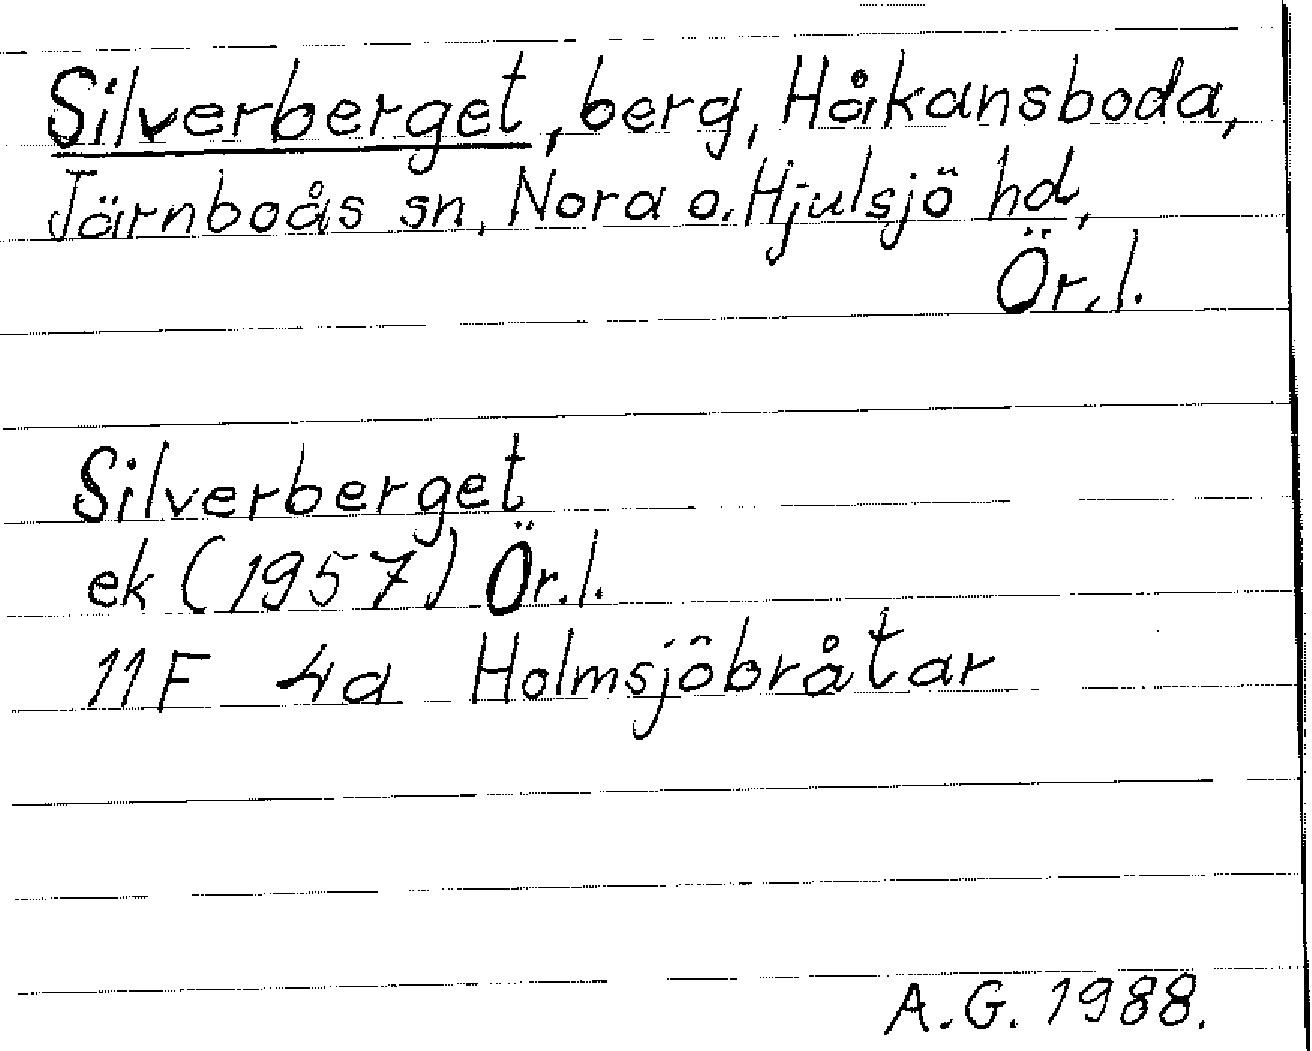 Silverberget, berg, Håkansboda,
Järnboås sn, Nora o. Hjulsjö hd,
Ör. l.
Silverberget
ek (1957) Ör. l.
11F 4a Holmsjöbråtar
A.G. 1988.